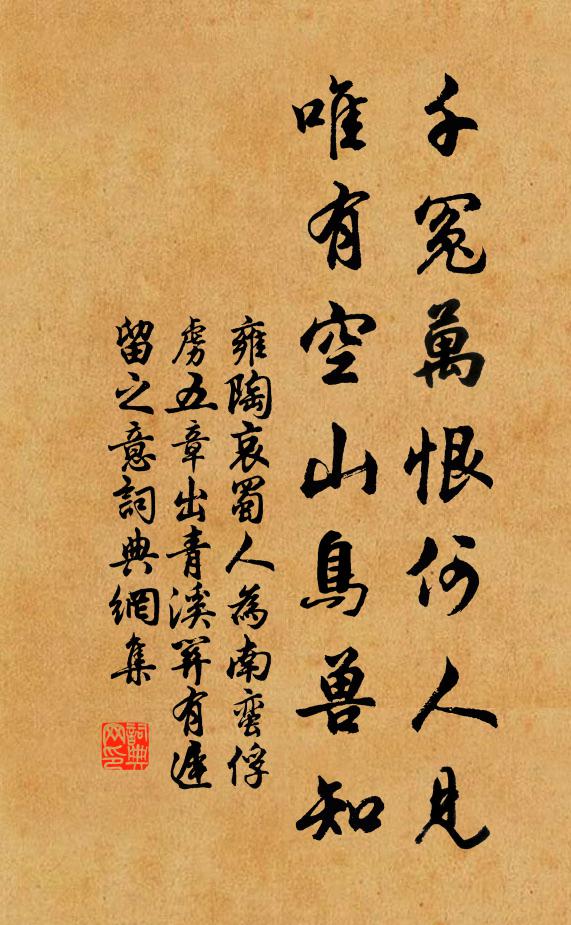 千冤萬恨何人見
唯有空山鳥兽知
雍陶哀蜀人為南蛮俘
虜五章出青溪關有遲
留之意詞典網集
詞典
网印